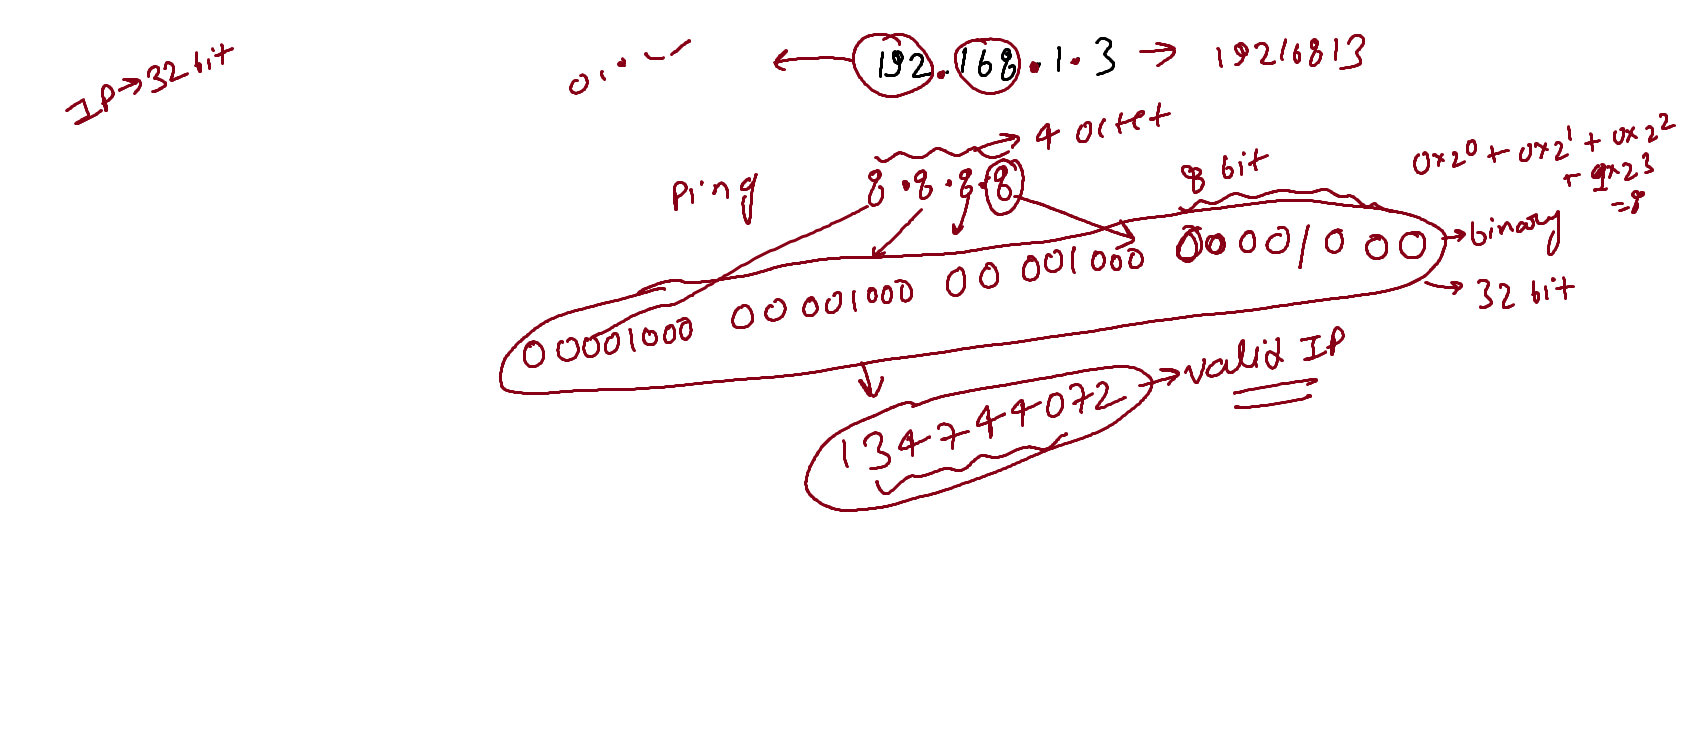 IP→32 bit
192.168.1.3 → 19216813
→ 4 octet
Ping 8.8.8.8
8 bit
0x2⁰ + 0x2¹ + 0x2²
+ 1x2³
=8
00001000 00001000 00001000 00001000 → binary
→ 32 bit
134744072 → valid IP